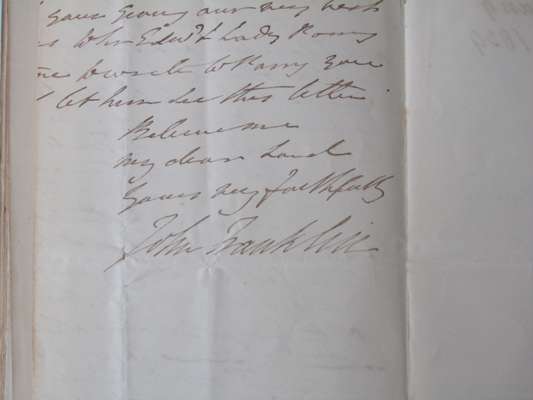 yours giving our very best
Sir John Edwd & Lady Parry
to Parry
let him see this letter
Believe me
My dear
Yours very faithfully
John Franklin
1829